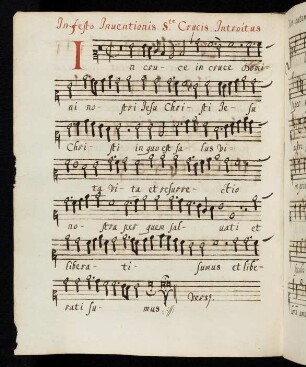 In festo Inventionis S.te Crucis. Introitus
In cru- ce in cruce Domi-
ni no- stri Jesu Chri- sti Je- su
Chri- sti in quo est sa- lus vi-
ta vi- ta et resurre- ctio
no- stra per quem sal- vati et
libera- ti- sumus et libe-
rati su- mus. Vers.